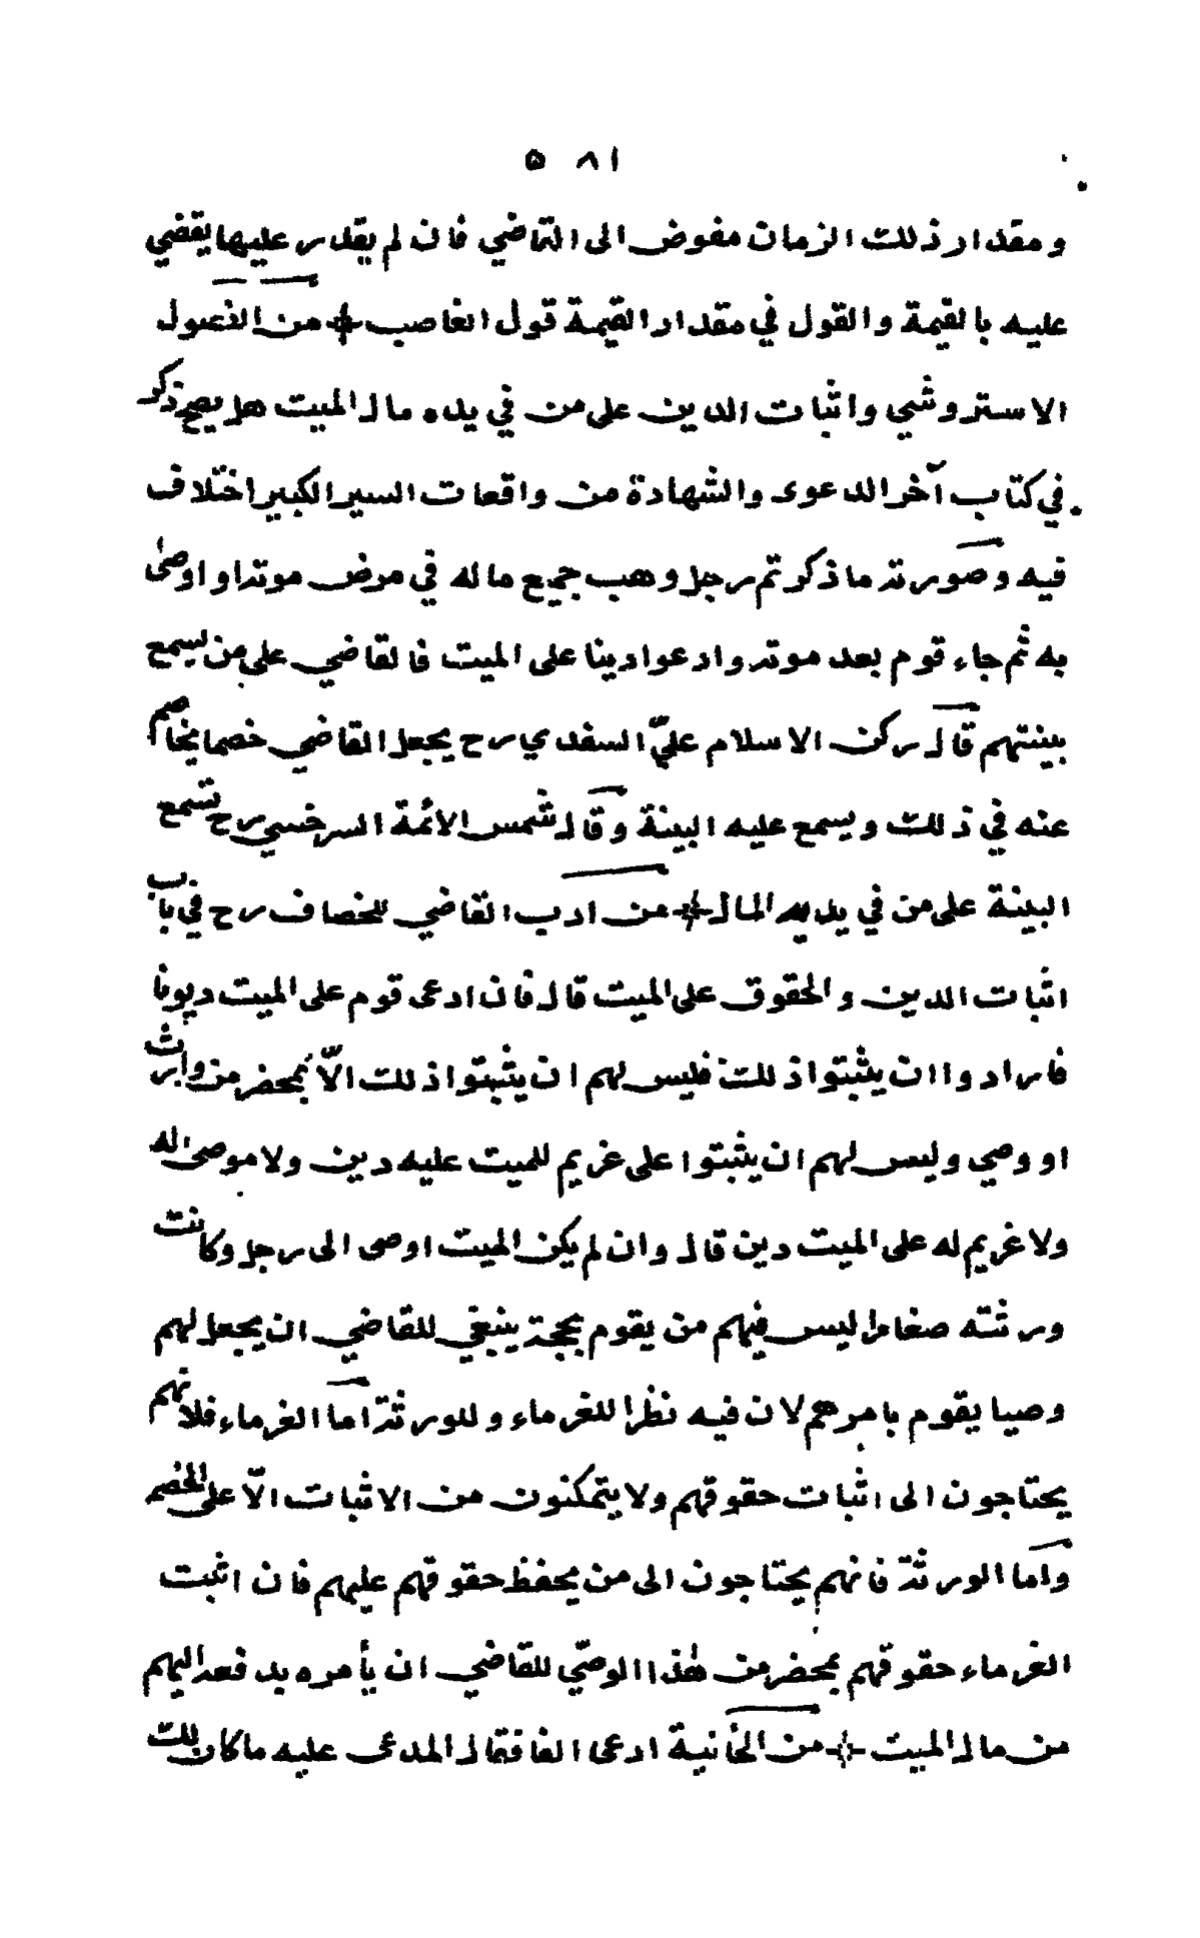 ٥٨١
ومقدار ذلك الزمان مفوض الى القاضي فان لم يقدر عليها يقضي
عليه بالقيمة والقول في مقدار القيمة قول الغاصب ❊ من الفصول
الاستروشني واثبات الدين على من في يده مال الميت هل يصح ذكر
في كتاب آخر الدعوى والشهادة من واقعات السير الكبير اختلاف
فيه وصورته ما ذكر ثم رجل وهب جميع ماله في مرض موته او اوصى
به ثم جاء قوم بعد موته وادعوا دينا على الميت فالقاضي على من يسمع
بينتهم قال ركن الاسلام عليّ السغدي رح يجعل القاضي خصما يخاصم
عنه في ذلك ويسمع عليه البينة وقال شمس الائمة السرخسي رح تسمع
البينة على من في يديه المال ❊ من ادب القاضي للخصاف رح في باب
اثبات الدين والحقوق على الميت قال فان ادعى قوم على الميت ديونا
فارادوا ان يثبتوا ذلك فليس لهم ان يثبتوا ذلك الاّ بمحضر من وارث
او وصي وليس لهم ان يثبتوا على غريم للميت عليه دين ولا موصى له
ولا غريم له على الميت دين قال وان لم يكن الميت اوصى الى رجل وكانت
ورثته صغارا ليس فيهم من يقوم بحجة ينبغي للقاضي ان يجعل لهم
وصيا يقوم بامرهم لان فيه نظرا للغرماء وللورثة اما الغرماء فلانهم
يحتاجون الى اثبات حقوقهم ولا يتمكنون من الاثبات الاّ على الخصم
واما الورثة فانهم يحتاجون الى من يحفظ حقوقهم عليهم فان اثبت
الغرماء حقوقهم بمحضر من هذا الوصي للقاضي ان يأمره بدفعه اليهم
من مال الميت ❊ من الخانية ادعى الفا فقال المدعى عليه ما كان لك